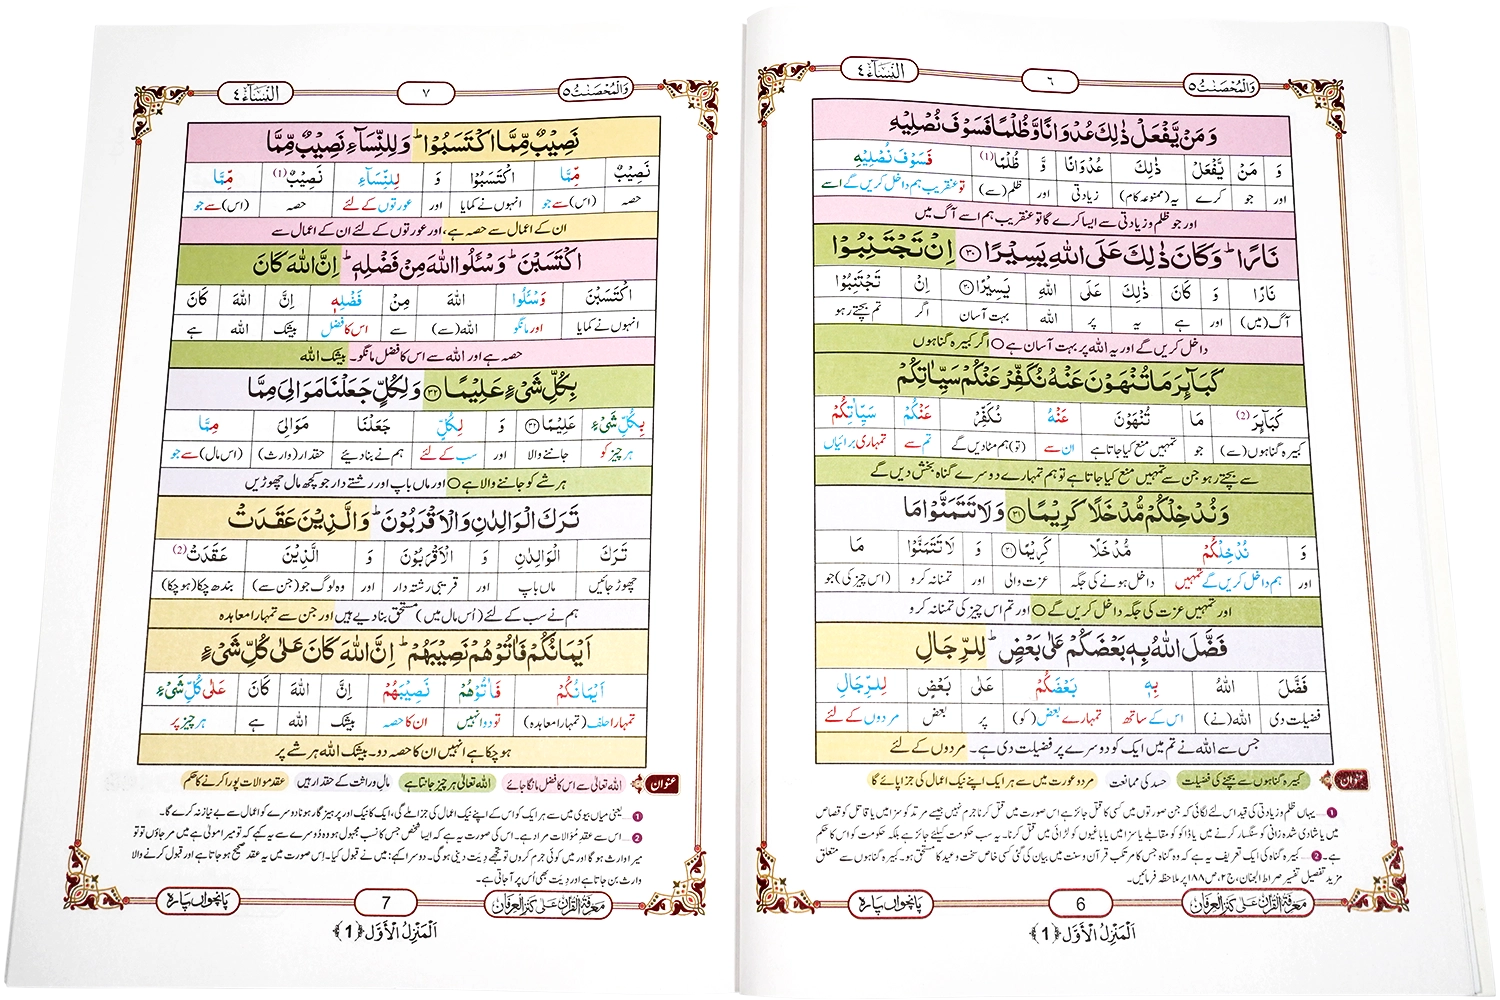 وَالْمُحْصَنٰتُ ٥
٦
النِّسَآء ٤
وَ مَنْ يَّفْعَلْ ذٰلِكَ عُدْوَانًا وَّ ظُلْمًا فَسَوْفَ نُصْلِيْهِ
وَ مَنْ يَّفْعَلْ ذٰلِكَ عُدْوَانًا وَّ ظُلْمًا (1) فَسَوْفَ نُصْلِيْهِ
اور جو کرے یہ (ممنوعہ کام) زیادتی اور ظلم (سے) تو عنقریب ہم داخل کریں گے اسے
اور جو ظلم و زیادتی سے ایسا کرے گا تو عنقریب ہم اسے آگ میں
نَارًا ؕ وَ كَانَ ذٰلِكَ عَلَى اللّٰهِ يَسِيْرًا ﴿۳۰﴾ اِنْ تَجْتَنِبُوْا
نَارًا وَ كَانَ ذٰلِكَ عَلَى اللّٰهِ يَسِيْرًا ﴿۳۰﴾ اِنْ تَجْتَنِبُوْا
آگ (میں) اور ہے یہ پر اللہ بہت آسان اگر تم بچتے رہو
داخل کریں گے اور یہ اللہ پر بہت آسان ہے ○ اگر کبیرہ گناہوں
كَبَآىِٕرَ مَا تُنْهَوْنَ عَنْهُ نُكَفِّرْ عَنْكُمْ سَيِّاٰتِكُمْ
كَبَآىِٕرَ (2) مَا تُنْهَوْنَ عَنْهُ نُكَفِّرْ عَنْكُمْ سَيِّاٰتِكُمْ
کبیرہ گناہوں (سے) جو تمہیں منع کیا جاتا ہے ان سے (تو) ہم مٹا دیں گے تم سے تمہاری برائیاں
سے بچتے رہو جن سے تمہیں منع کیا جاتا ہے تو ہم تمہارے دوسرے گناہ بخش دیں گے
وَ نُدْخِلْكُمْ مُّدْخَلًا كَرِيْمًا ﴿۳۱﴾ وَ لَا تَتَمَنَّوْا مَا
وَ نُدْخِلْكُمْ مُّدْخَلًا كَرِيْمًا ﴿۳۱﴾ وَ لَا تَتَمَنَّوْا مَا
اور ہم داخل کریں گے تمہیں داخل ہونے کی جگہ عزت والی اور تمنا نہ کرو (اس چیز کی) جو
اور تمہیں عزت کی جگہ داخل کریں گے ○ اور تم اس چیز کی تمنا نہ کرو
فَضَّلَ اللّٰهُ بِهٖ بَعْضَكُمْ عَلٰى بَعْضٍ ؕ لِلرِّجَالِ
فَضَّلَ اللّٰهُ بِهٖ بَعْضَكُمْ عَلٰى بَعْضٍ لِلرِّجَالِ
فضیلت دی اللہ (نے) اس کے ساتھ تمہارے بعض (کو) پر بعض مردوں کے لئے
جس سے اللہ نے تم میں ایک کو دوسرے پر فضیلت دی ہے۔ مردوں کے لئے
عنوان کبیرہ گناہوں سے بچنے کی فضیلت حسد کی ممانعت مرد و عورت میں سے ہر ایک اپنے نیک اعمال کی جزا پائے گا
1 – یہاں ظلم و زیادتی کی قید اس لئے لگائی کہ جن صورتوں میں کسی کا قتل جائز ہے اس صورت میں قتل کرنا جرم نہیں جیسے مرتد کو سزا میں یا قاتل کو قصاص
میں یا شادی شدہ زانی کو سنگسار کرنے میں یا ڈاکو کو مقابلے یا سزا میں یا باغیوں کو لڑائی میں قتل کرنا۔ یہ سب حکومت کیلئے جائز ہے بلکہ حکومت کو اس کا حکم
ہے۔ 2 – کبیرہ گناہ کی ایک تعریف یہ ہے کہ وہ گناہ جس کا مرتکب قرآن و سنت میں بیان کی گئی کسی خاص سخت وعید کا مستحق ہو۔ کبیرہ گناہوں سے متعلق
مزید تفصیل تفسیر صراط الجنان، ج۲، ص۱۸۸ پر ملاحظہ فرمائیں۔
معرفۃ القرآن علی کنز العرفان
6
پانچواں پارہ
اَلْمَنْزِلُ الْاَوَّل ﴿1﴾
وَالْمُحْصَنٰتُ ٥
٧
النِّسَآء ٤
نَصِيْبٌ مِّمَّا اكْتَسَبُوْا ؕ وَ لِلنِّسَآءِ نَصِيْبٌ مِّمَّا
نَصِيْبٌ مِّمَّا اكْتَسَبُوْا وَ لِلنِّسَآءِ نَصِيْبٌ (1) مِّمَّا
حصہ (اس) سے جو انہوں نے کمایا اور عورتوں کے لئے حصہ (اس) سے جو
ان کے اعمال سے حصہ ہے، اور عورتوں کے لئے ان کے اعمال سے
اكْتَسَبْنَ ؕ وَ سْـَٔلُوا اللّٰهَ مِنْ فَضْلِهٖ ؕ اِنَّ اللّٰهَ كَانَ
اكْتَسَبْنَ وَ سْـَٔلُوا اللّٰهَ مِنْ فَضْلِهٖ اِنَّ اللّٰهَ كَانَ
انہوں نے کمایا اور مانگو اللہ (سے) سے اس کا فضل بیشک اللہ ہے
حصہ ہے اور اللہ سے اس کا فضل مانگو۔ بیشک اللہ
بِكُلِّ شَیْءٍ عَلِيْمًا ﴿۳۲﴾ وَ لِكُلٍّ جَعَلْنَا مَوَالِیَ مِمَّا
بِكُلِّ شَیْءٍ عَلِيْمًا ﴿۳۲﴾ وَ لِكُلٍّ جَعَلْنَا مَوَالِیَ مِمَّا
ہر چیز کو جاننے والا اور سب کے لئے ہم نے بنا دیے حقدار (وارث) (اس مال) سے جو
ہر شے کو جاننے والا ہے ○ اور ماں باپ اور رشتے دار جو کچھ مال چھوڑیں
تَرَكَ الْوَالِدٰنِ وَ الْاَقْرَبُوْنَ ؕ وَ الَّذِيْنَ عَقَدَتْ
تَرَكَ الْوَالِدٰنِ وَ الْاَقْرَبُوْنَ وَ الَّذِيْنَ عَقَدَتْ (2)
چھوڑ جائیں ماں باپ اور قریبی رشتہ دار اور وہ لوگ جو (جن سے) بندھ چکا (ہو چکا)
ہم نے سب کے لئے (اُس مال میں) مستحق بنا دیے ہیں اور جن سے تمہارا معاہدہ
اَيْمَانُكُمْ فَاٰتُوْهُمْ نَصِيْبَهُمْ ؕ اِنَّ اللّٰهَ كَانَ عَلٰى كُلِّ شَیْءٍ
اَيْمَانُكُمْ فَاٰتُوْهُمْ نَصِيْبَهُمْ اِنَّ اللّٰهَ كَانَ عَلٰى كُلِّ شَیْءٍ
تمہارا حلف (تمہارا معاہدہ) تو دو انہیں ان کا حصہ بیشک اللہ ہے ہر چیز پر
ہو چکا ہے انہیں ان کا حصہ دو۔ بیشک اللہ ہر شے پر
عنوان اللہ تعالیٰ سے اس کا فضل مانگا جائے اللہ تعالیٰ ہر چیز جانتا ہے مالِ وراثت کے حقدار ہیں عقدِ موالات پورا کرنے کا حکم
1 – یعنی میاں بیوی میں سے ہر ایک کو اس کے اپنے نیک اعمال کی جزا ملے گی، ایک کا نیک اور پرہیزگار ہونا دوسرے کو اعمال سے بے نیاز نہ کرے گا۔
2 – اس سے عقدِ مُوالات مراد ہے۔ اس کی صورت یہ ہے کہ ایسا شخص جس کا نسب مجہول ہو وہ دوسرے سے یہ کہے کہ تو میرا مولیٰ ہے میں مرجاؤں تو تو
میرا وارث ہو گا اور میں کوئی جرم کروں تو تجھے دِیَت دینی ہو گی۔ دوسرا کہے: میں نے قبول کیا۔ اِس صورت میں یہ عقد صحیح ہو جاتا ہے اور قبول کرنے والا
وارث بن جاتا ہے اور دِیَت بھی اُس پر آ جاتی ہے۔
معرفۃ القرآن علی کنز العرفان
7
پانچواں پارہ
اَلْمَنْزِلُ الْاَوَّل ﴿1﴾